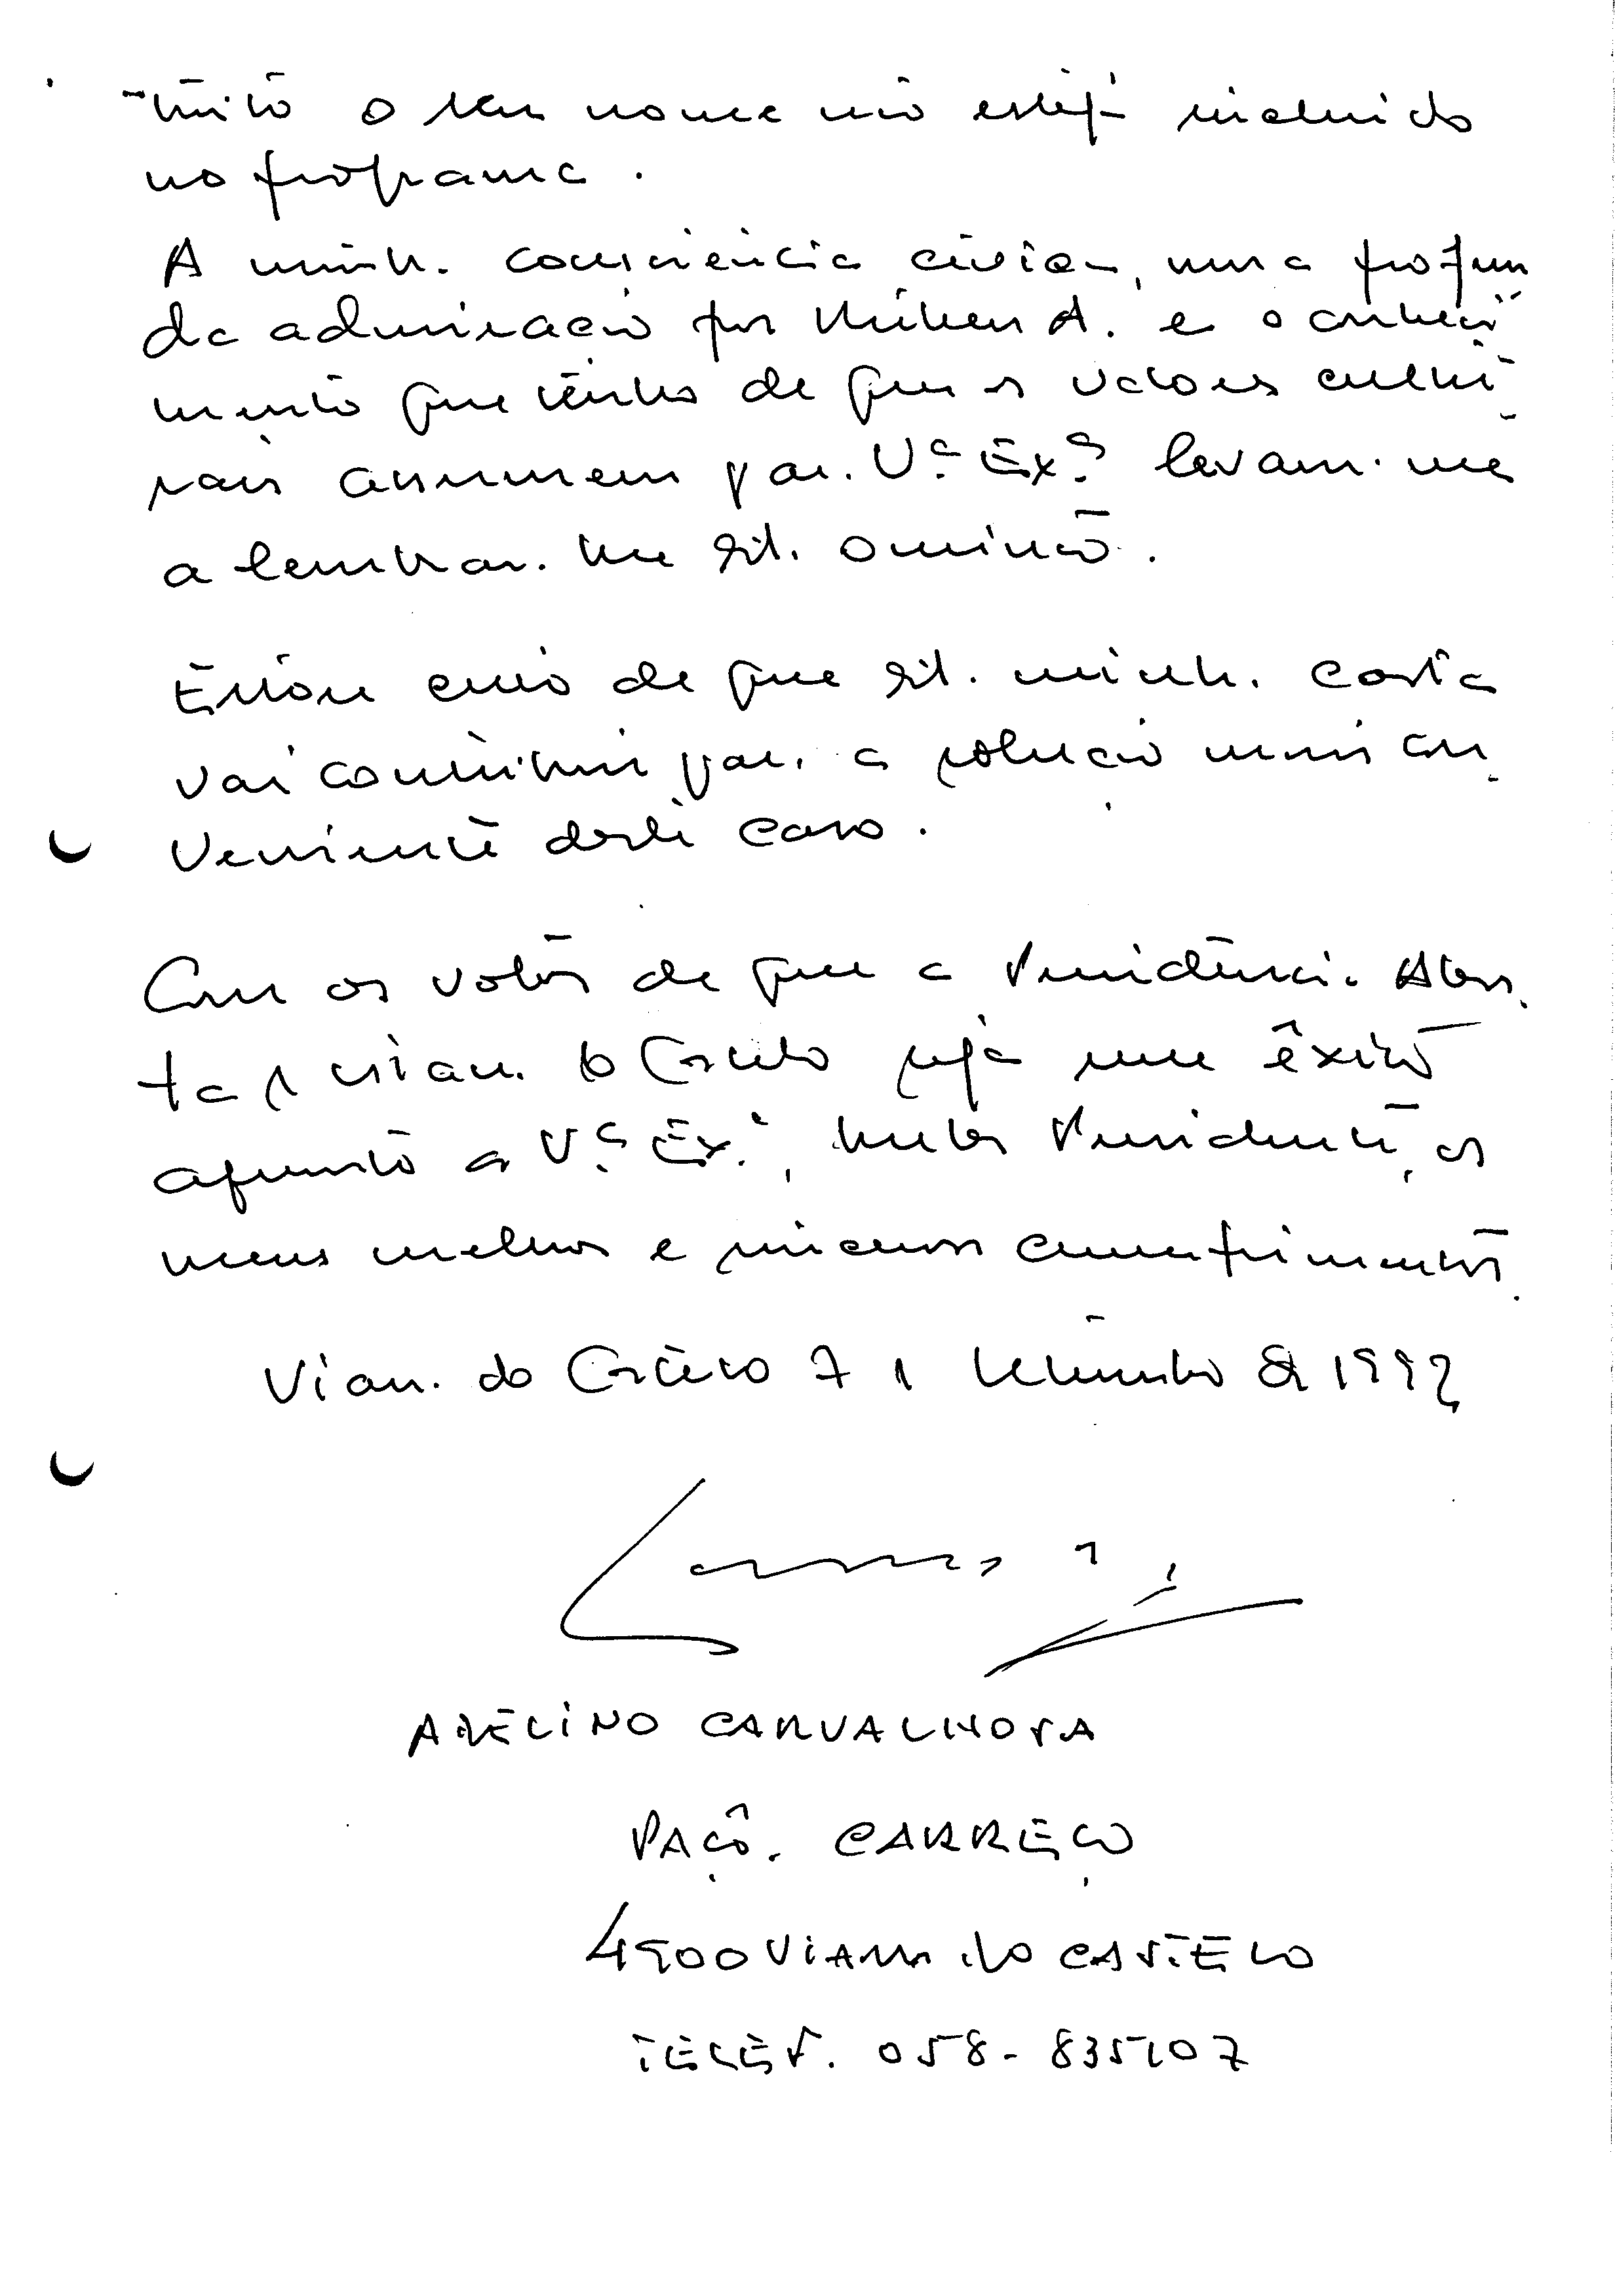 o seu nome não esteja incluído
no programa.
A minha consciência cívica, uma profun
da admiração por Rúben A. e o conheci
mento que tenho de que os valores cultu
rais assumem para V.ª Ex.ª levam-me
a lembrar-lhe esta omissão.
Estou certo de que esta minha carta
vai contribuir para a solução mais con
veniente deste caso.
Com os votos de que a Presidência Aber
ta p/ Viana do Castelo seja um êxito
apresento a V.ª Ex.ª, Senhor Presidente, os
meus melhores e sinceros cumprimentos.
Viana do Castelo 7 / Setembro de 1992
AVELINO CARVALHOSA
PAÇÔ. CARREÇO
4900 VIANA DO CASTELO
TELEF. 058-835107